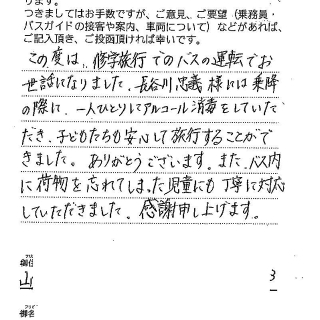 ります。
つきましてはお手数ですが、ご意見、ご要望（乗務員・
バスガイドの接客や案内、車両について）などがあれば、
ご記入頂き、ご投函頂ければ幸いです。
この度は、修学旅行でのバスの運転でお
世話になりました。長谷川忠義様には乗降
の際に、一人ひとりにアルコール消毒をしていた
だき、子どもたちも安心して旅行することがで
きました。ありがとうございます。また、バス内
に荷物を忘れてしまった児童にも丁寧に対応
していただきました。感謝申し上げます。
山
3
御名